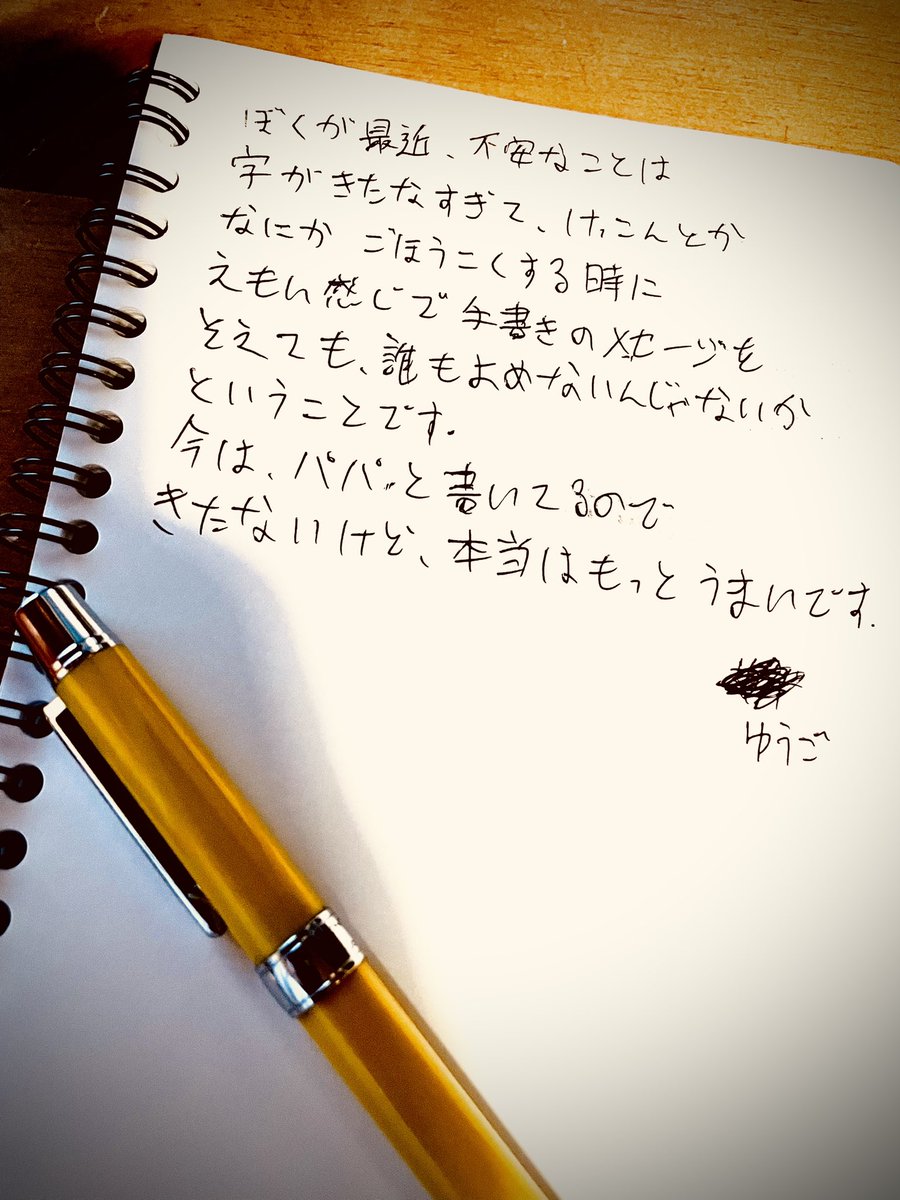 ぼくが最近、不安なことは
字がきたなすぎて、けっこんとか
なにか ごほうこくする時に
えもい感じで手書きのメセージを
そえても、誰もよめないんじゃないか
ということです。
今は、パパッと書いてるので
きたないけど、本当はもっとうまいです.
ゆうご